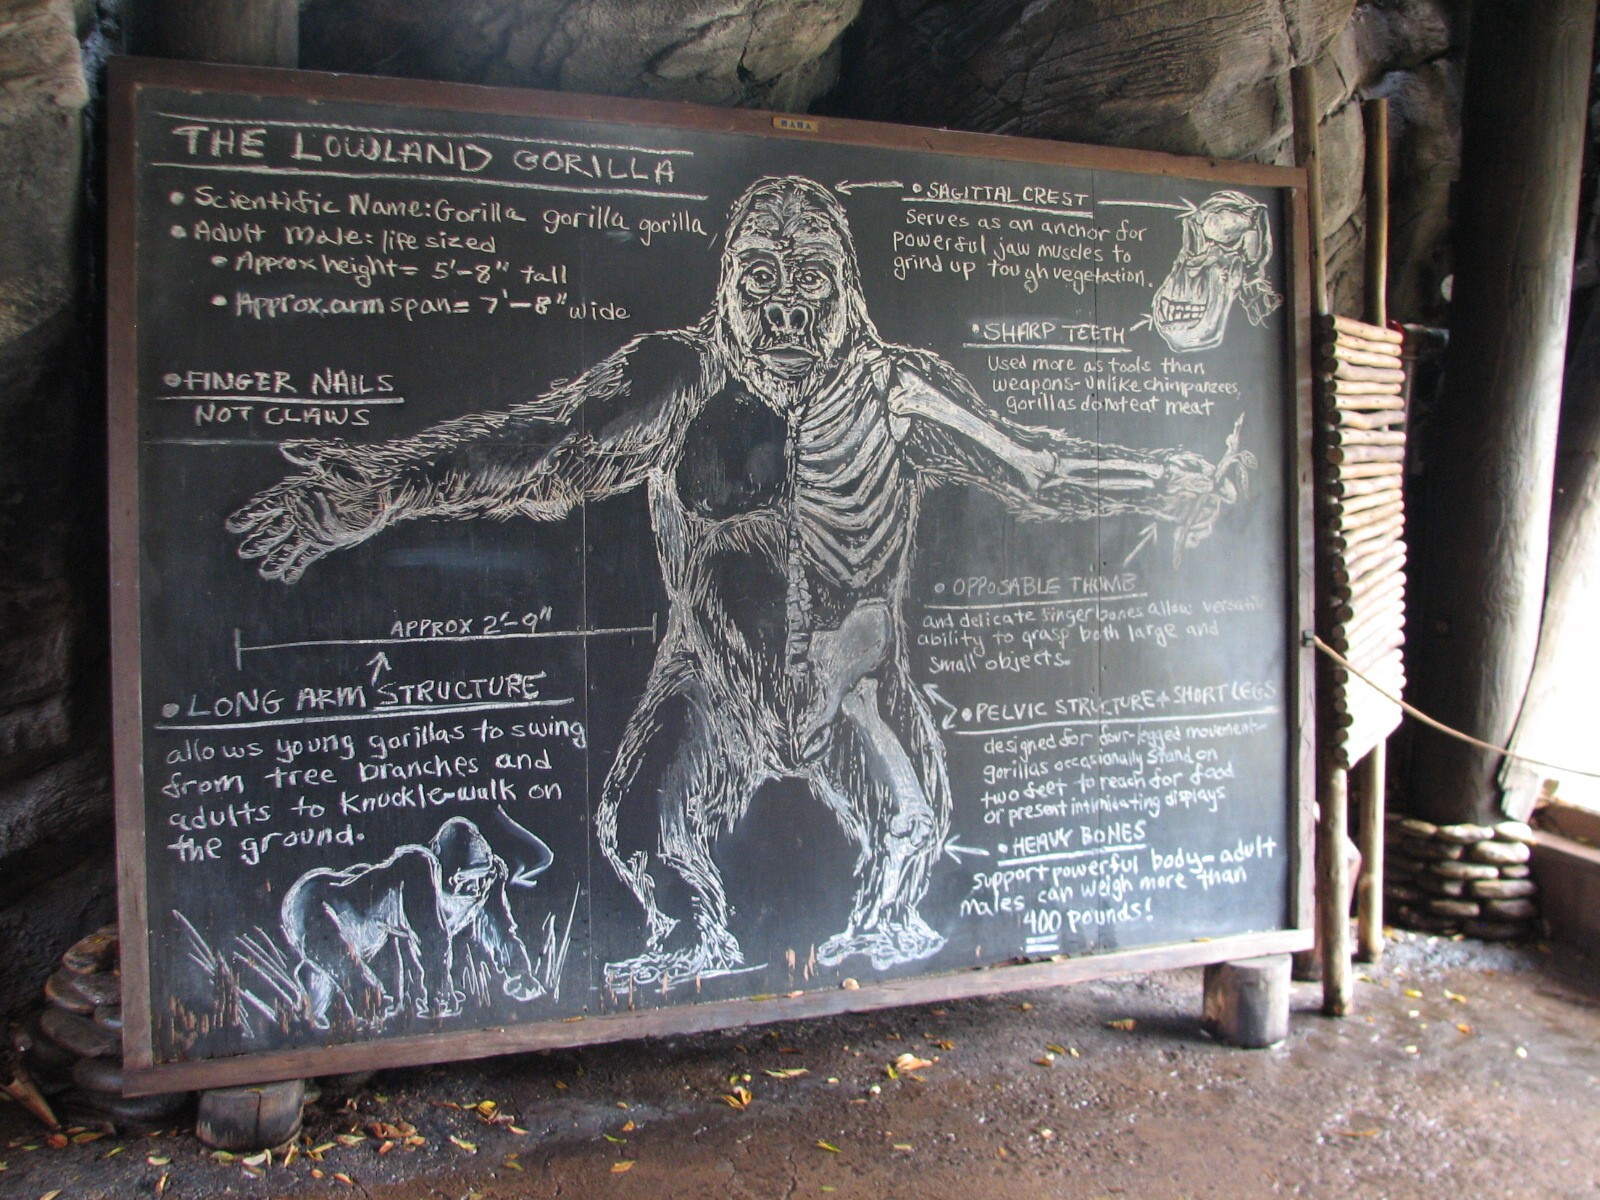 THE LOWLAND GORILLA
• Scientific Name: Gorilla gorilla gorilla
• Adult Male: life sized
• Approx height = 5'-8" tall
• Approx. arm span = 7'-8" wide
• FINGER NAILS
NOT CLAWS
APPROX 2'-9"
• LONG ARM STRUCTURE
allows young gorillas to swing
from tree branches and
adults to knuckle-walk on
the ground.
• SAGITTAL CREST
Serves as an anchor for
powerful jaw muscles to
grind up tough vegetation.
• SHARP TEETH
Used more as tools than
weapons - unlike chimpanzees,
gorillas do not eat meat
• OPPOSABLE THUMB
and delicate finger bones allow
ability to grasp both large and
small objects.
• PELVIC STRUCTURE + SHORT LEGS
designed for four-legged movement-
gorillas occasionally stand on
two feet to reach for food
or present intimidating displays
• HEAVY BONES
support powerful body - adult
males can weigh more than
400 pounds!